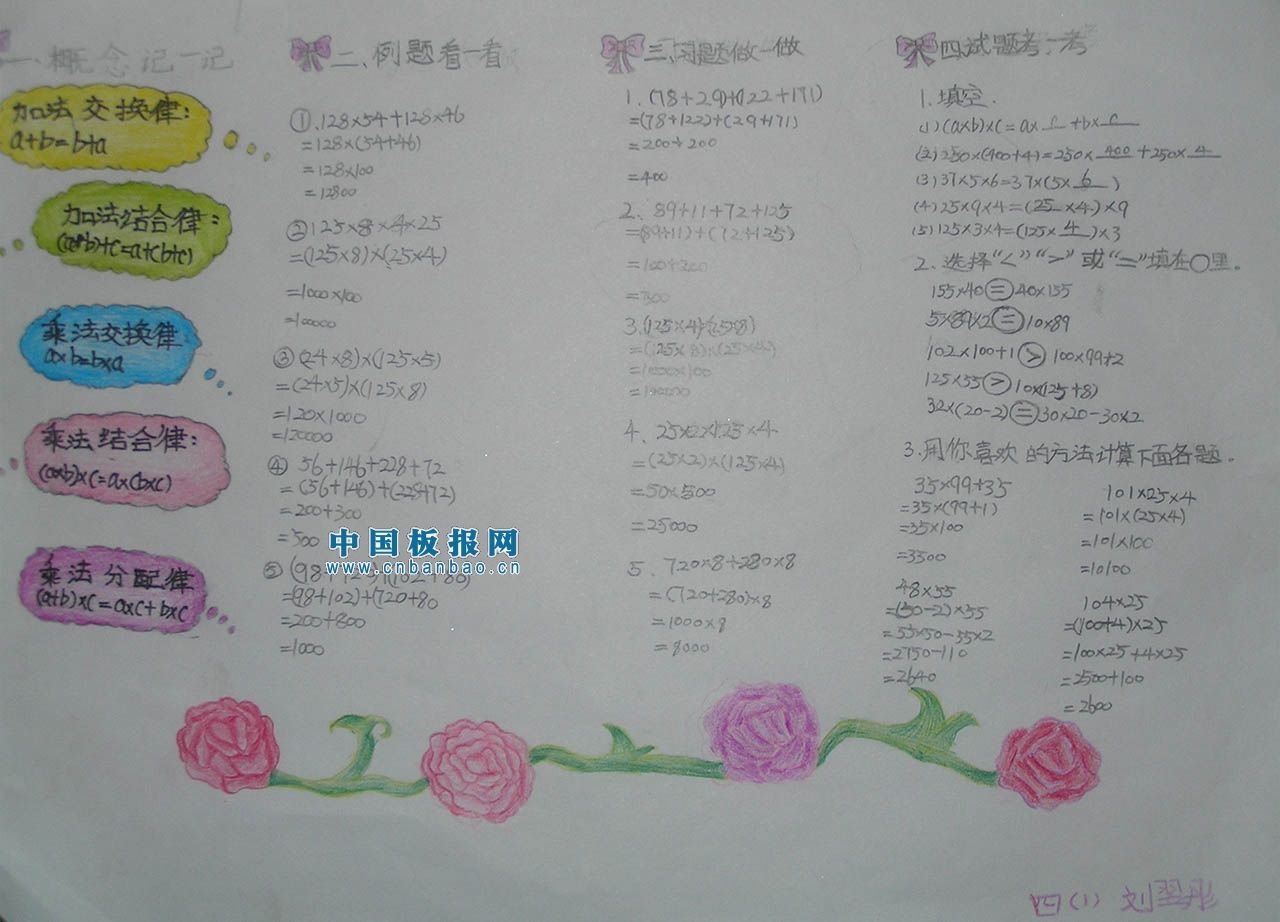 一、概念记一记
加法交换律:
a+b=b+a
加法结合律:
(a+b)+c=a+(b+c)
乘法交换律
a×b=b×a
乘法结合律:
(a×b)×c=a×(b×c)
乘法分配律
(a+b)×c=a×c+b×c
二、例题看一看
①.128×54+128×46
=128×(54+46)
=128×100
=12800
②125×8×4×25
=(125×8)×(25×4)
=1000×100
=100000
③(24×8)×(125×5)
=(24×5)×(125×8)
=120×1000
=120000
④ 56+146+228+72
=(56+146)+(228+72)
=200+300
=500
⑤
=(98+102)+(720+80
=200+800
=1000
三、习题做一做
1.(78+29)+(122+171)
=(78+122)+(29+171)
=200+200
=400
2、89+11+72+125
=(89+11)+(72+125)
=100+200
=300
3.(125×4)×(25×8)
=(125×8)×(25×4)
=1000×100
=100000
4、25×2×125×4
=(25×2)×(125×4)
=50×500
=25000
5、720×8+280×8
=(720+280)×8
=1000×8
=8000
四试题考一考
1.填空.
(1)(a×b)×c=a×c+b×c
(2)250×(400+4)=250×400+250×4
(3)37×5×6=37×(5×6)
(4)25×9×4=(25×4)×9
(5)125×3×4=(125×4)×3
2、选择“<”“>”或“=”填在○里。
155×40=40×155
5×89×2=10×89
102×100+1>100×99+2
125×55>10×(125+8)
32×(20-2)=30×20-30×2
3.用你喜欢的方法计算下面各题。
35×99+35
=35×(99+1)
=35×100
=3500
101×25×4
=101×(25×4)
=101×100
=10100
48×55
=(50-2)×55
=55×50-55×2
=2750-110
=2640
104×25
=(100+4)×25
=100×25+4×25
=2500+100
=2600
中国板报网
www.cnbanbao.cn
四(1) 刘翌彤